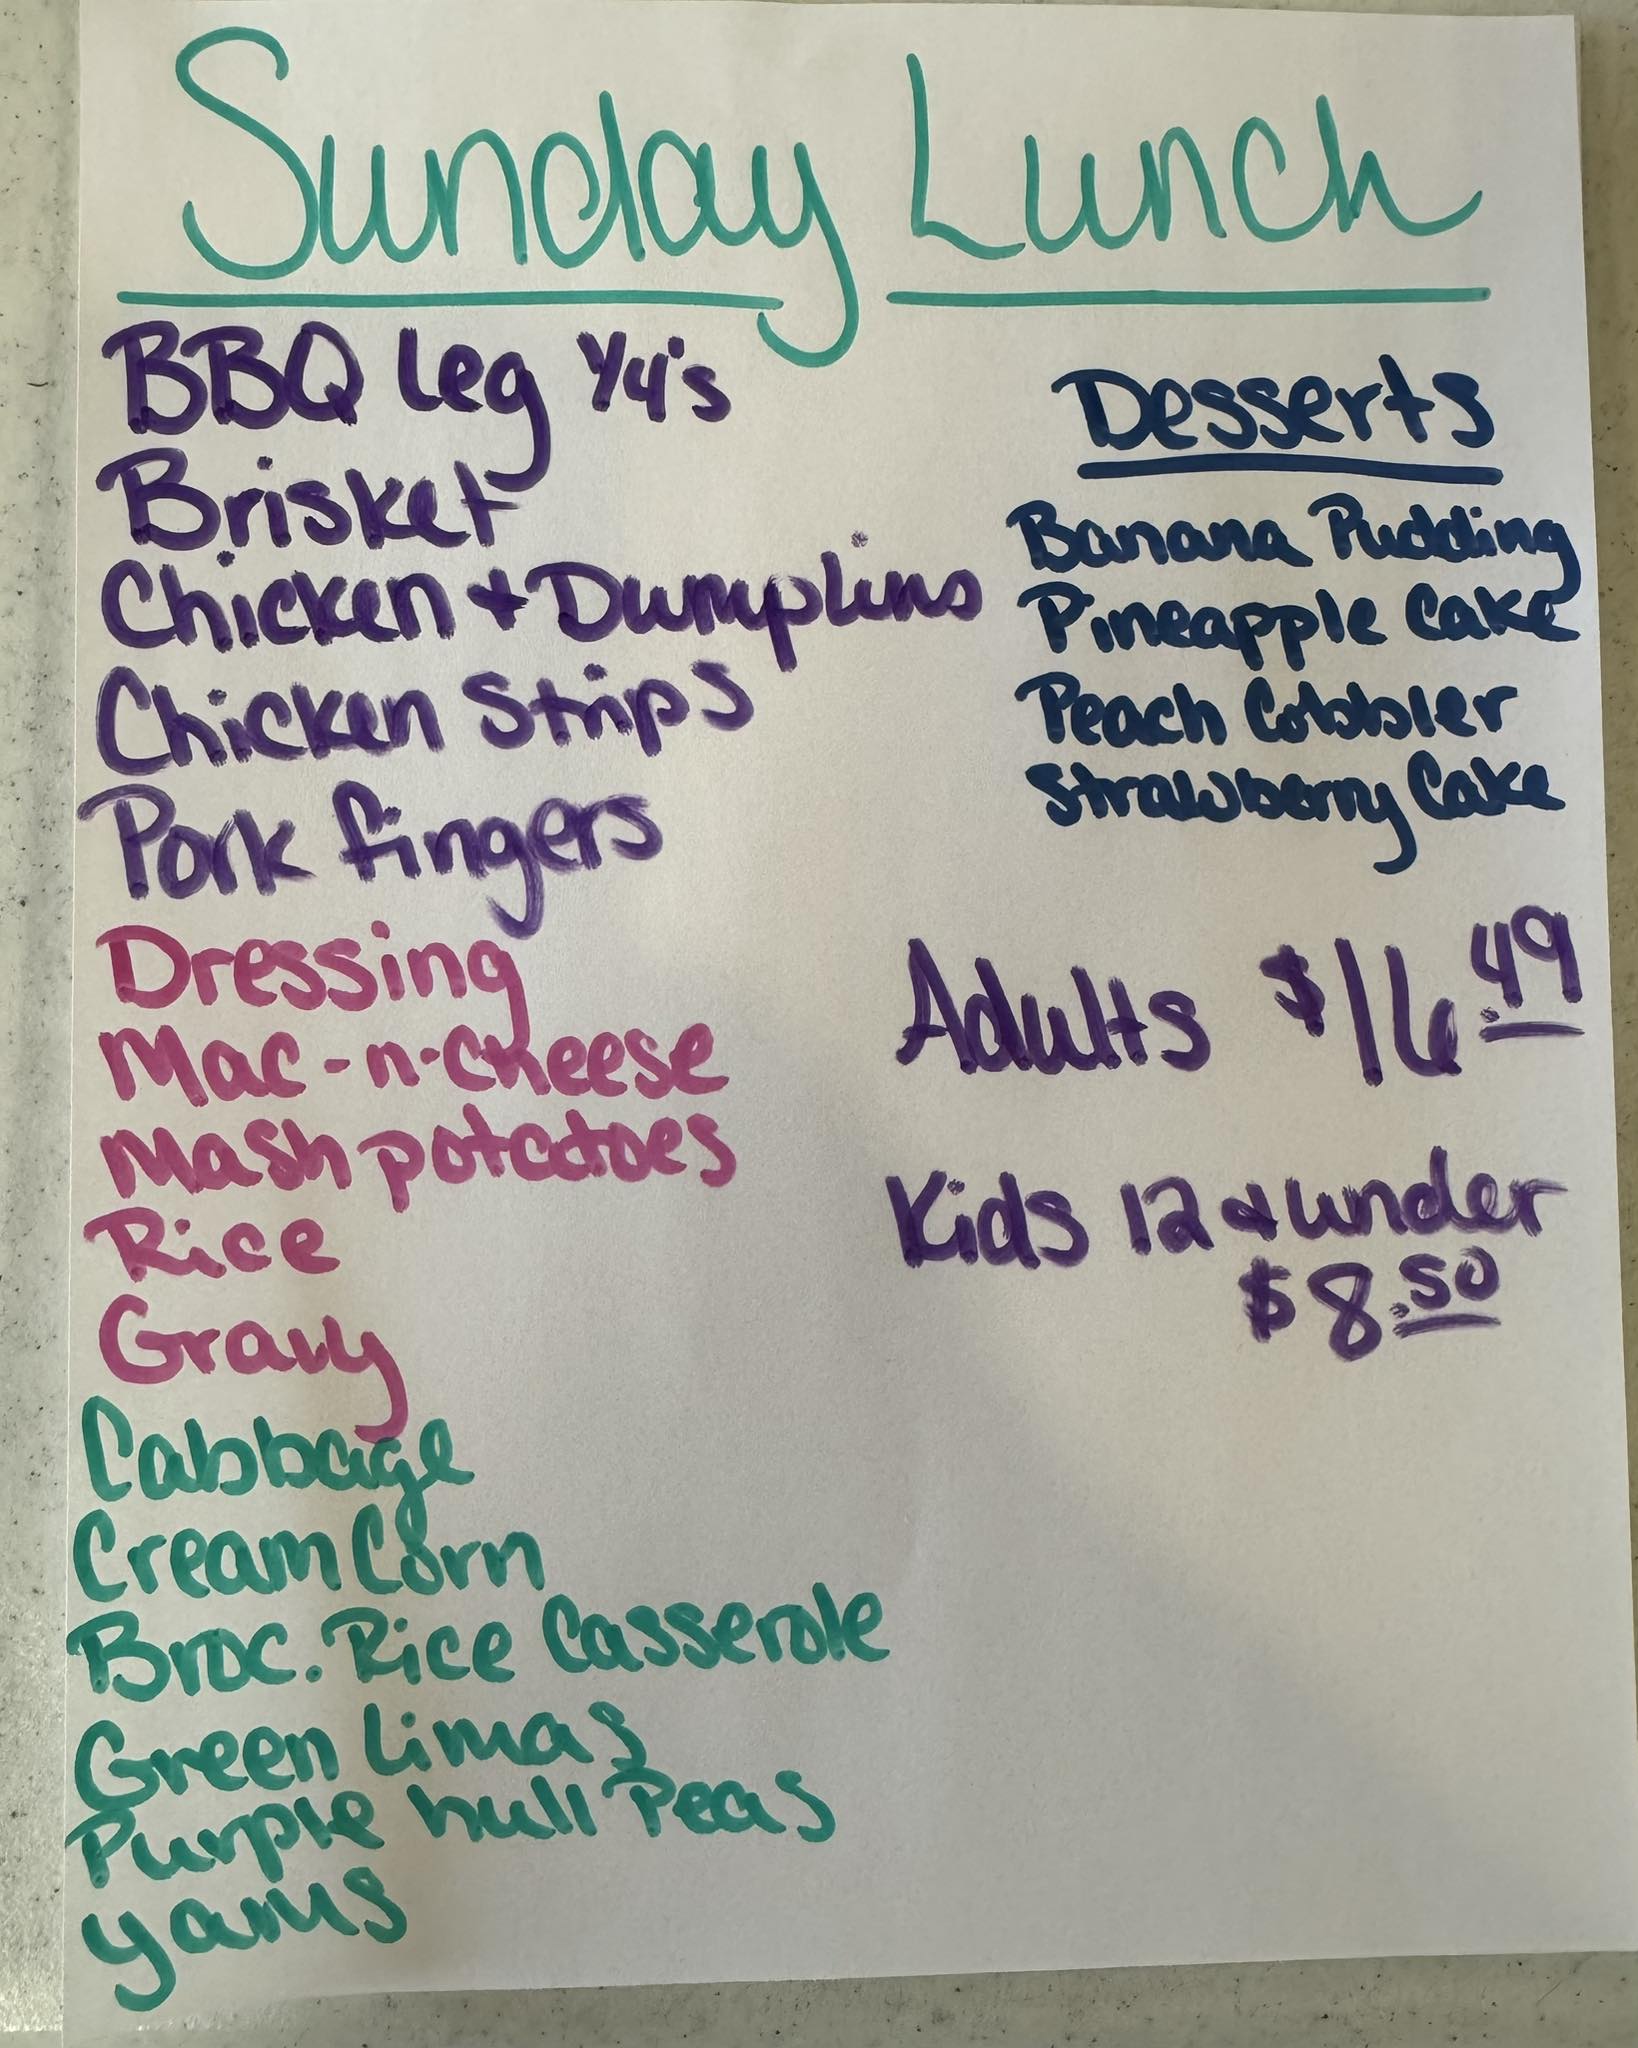 Sunday Lunch
BBQ Leg 1/4's
Brisket
Chicken + Dumplins
Chicken Strips
Pork fingers
Dressing
Mac-n-cheese
Mash potatoes
Rice
Gravy
Cabbage
Cream Corn
Broc. Rice Casserole
Green Limas
Purple hull Peas
yams
Desserts
Banana Pudding
Pineapple Cake
Peach Cobbler
Strawberry Cake
Adults $16.49
Kids 12 & under
$8.50